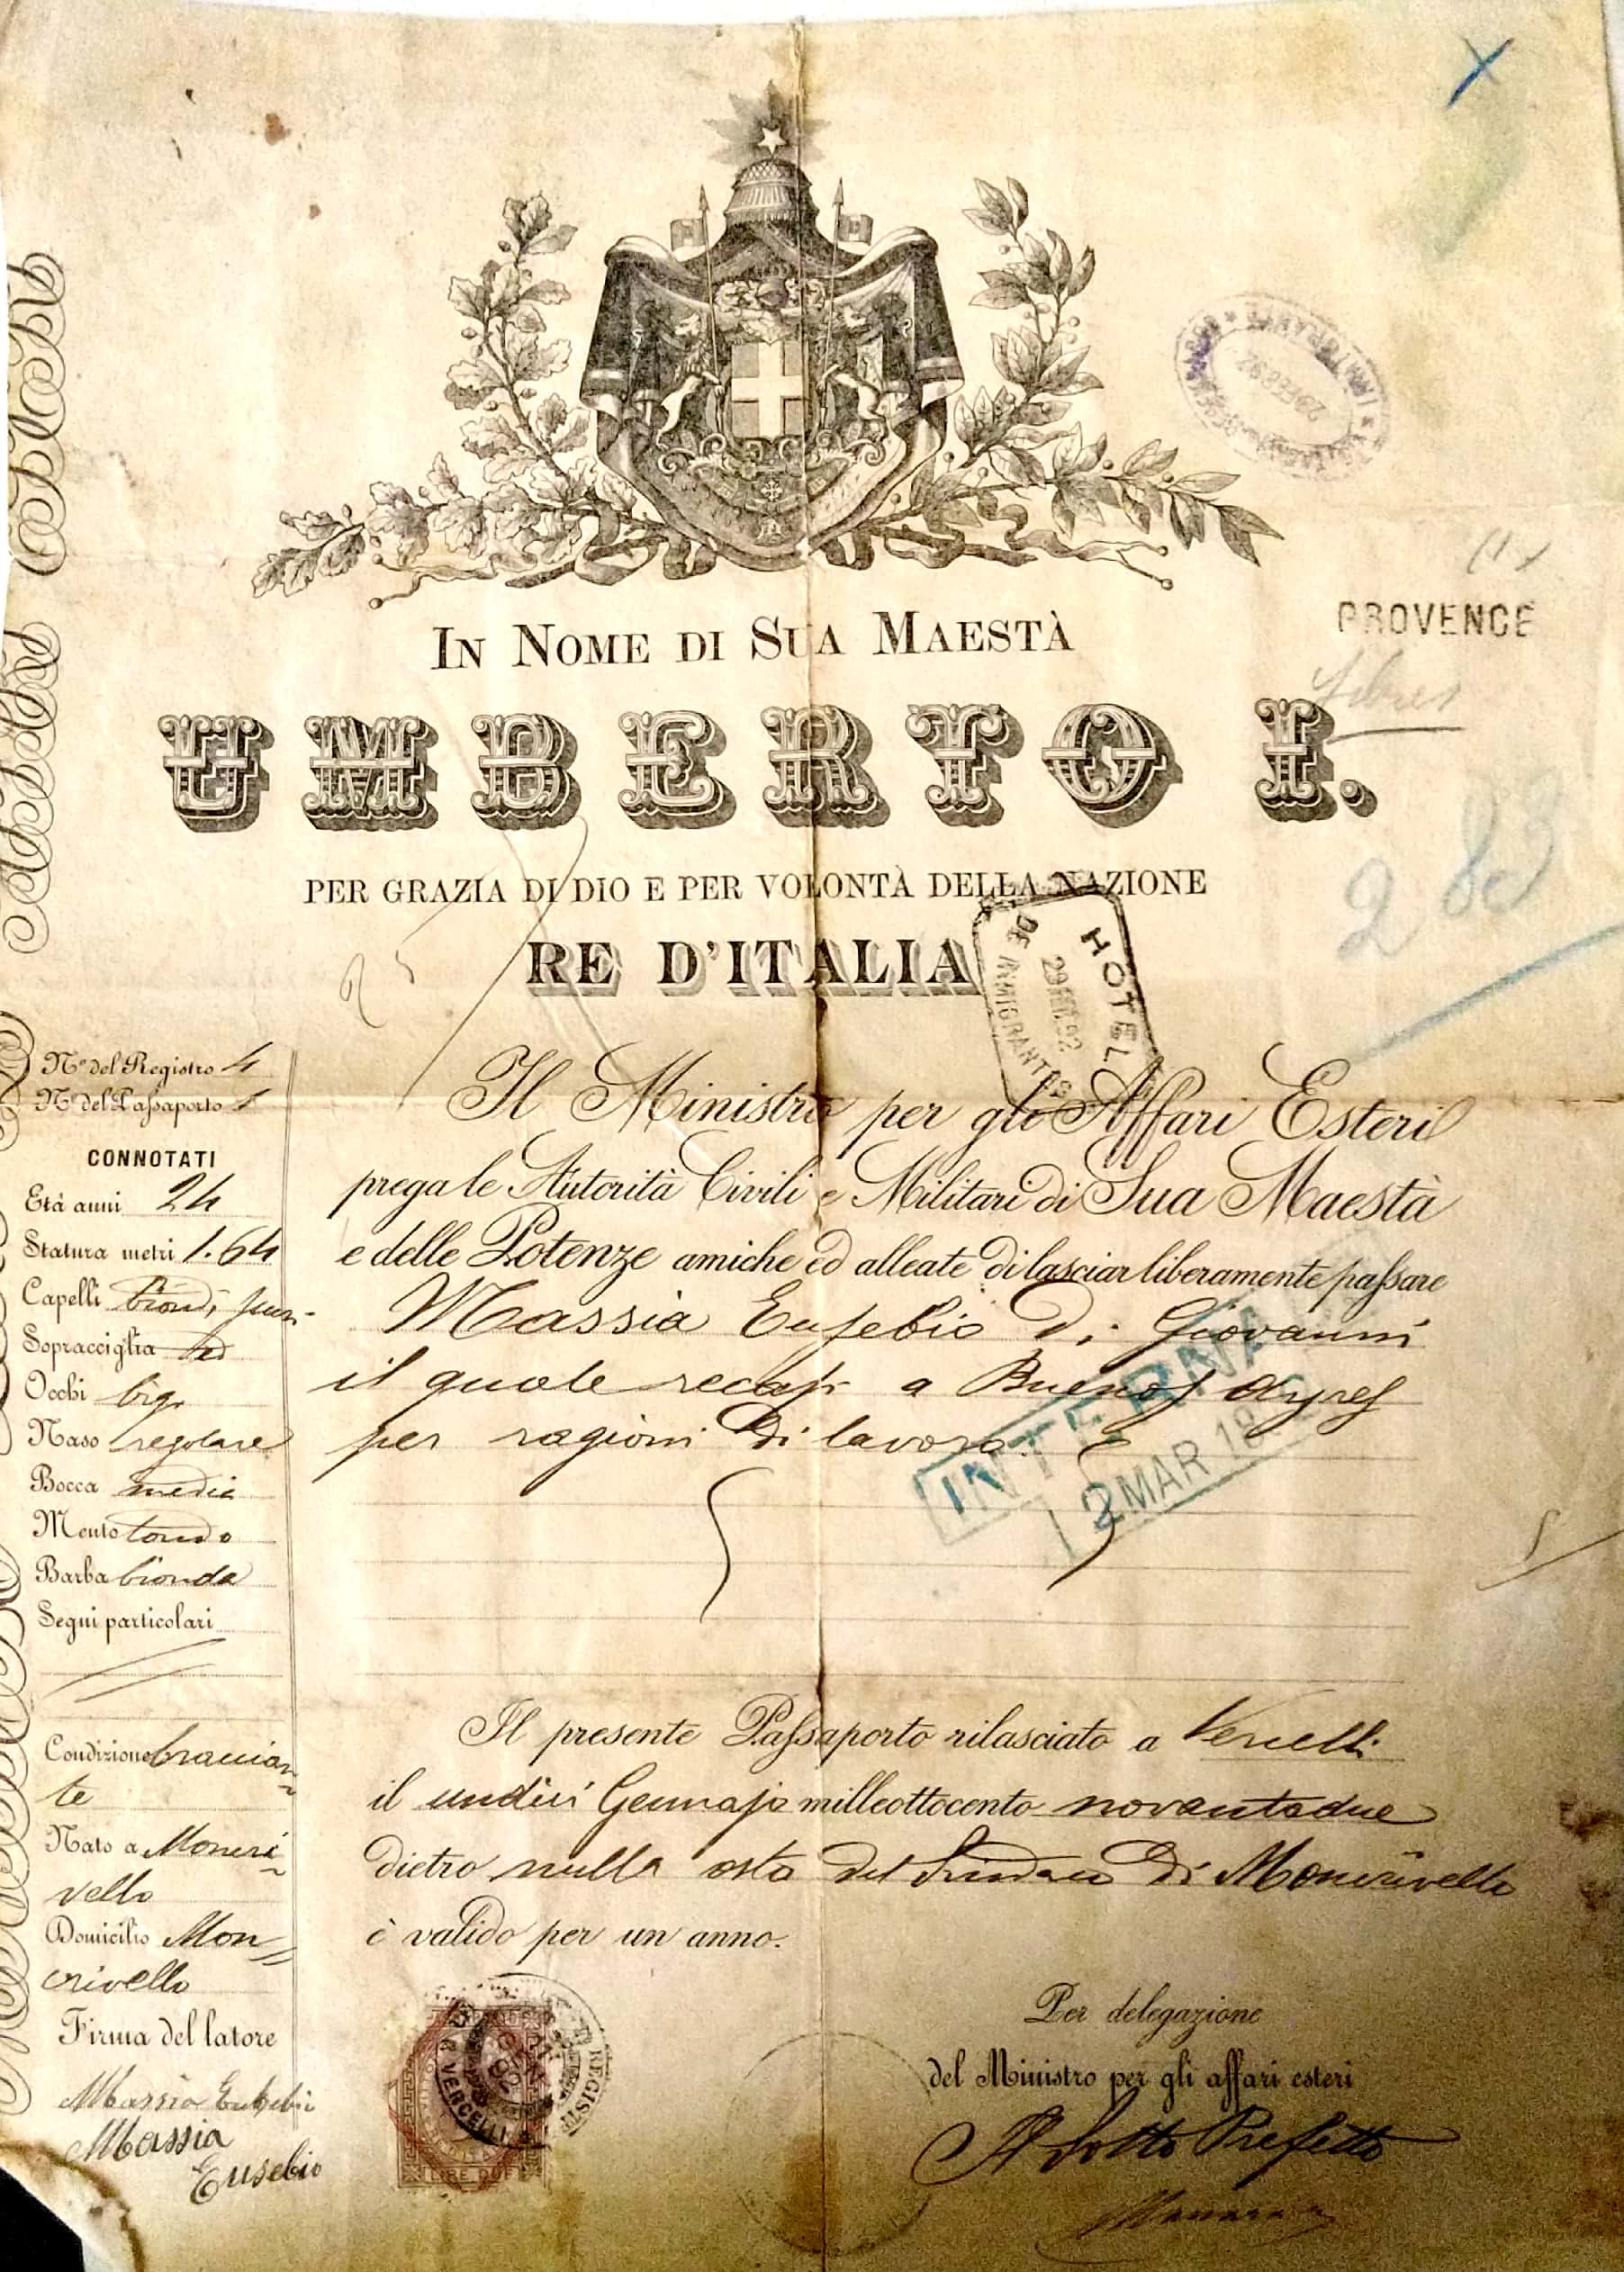 PROVENCE
IN NOME DI SUA MAESTÀ
UMBERTO I.
283
PER GRAZIA DI DIO E PER VOLONTÀ DELLA NAZIONE
RE D'ITALIA
HOTEL
DE INMIGRANTES
29 92
Nº del Registro 4
Nº del Passaporto 4
CONNOTATI
Età anni 24
Statura metri 1.64
Capelli biondi
Sopracciglia id
Occhi bigi
Naso regolare
Bocca media
Mento tondo
Barba bionda
Segni particolari
Condizione braccian-
te
Nato a Moncri-
vello
Domicilio Mon-
crivello
Firma del latore
Massia Eusebio
Massia
Eusebio
Il Ministro per gli Affari Esteri
prega le Autorità Civili e Militari di Sua Maestà
e delle Potenze amiche ed alleate di lasciar liberamente passare
Massia Eusebio di Giovanni
il quale recasi a Buenos Ayres
per ragioni di lavoro.
INTERNA
2 MAR 18
Il presente Passaporto rilasciato a Vercelli
il undici Gennajo milleottocento novantadue
dietro nulla osta del Sindaco di Moncrivello
è valido per un anno.
VERCELLI
LIRE DUE
Per delegazione
del Ministro per gli affari esteri
Il Sotto Prefetto